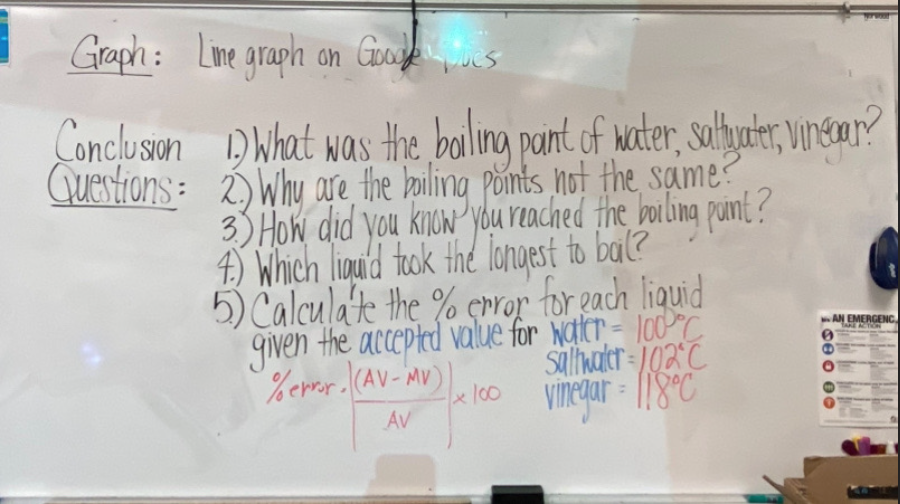 Graph: Line graph on Google
Conclusion Questions:
1.) What was the boiling point of water, saltwater, vinegar?
2.) Why are the boiling points not the same?
3.) How did you know you reached the boiling point?
4.) Which liquid took the longest to boil?
5.) Calculate the % error for each liquid
given the accepted value for water = 100°C
saltwater = 102°C
vinegar = 118°C
% error = |(AV - MV) / AV| x 100
AN EMERGENC
TAKE ACTION